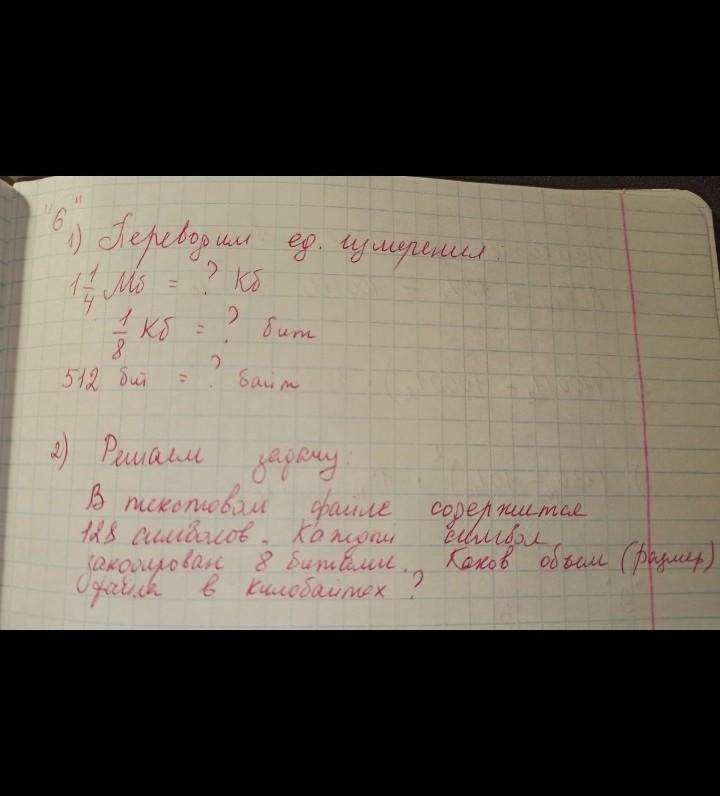 "6"
1) Переводим ед. измерения:
1 1/4 Мб = ? Кб
1/8 Кб = ? бит
512 бит = ? байт
2) Решаем задачу:
В текстовом файле содержится
128 символов. Каждый символ
закодирован 8 битами. Каков объем (размер)
файла в килобайтах?